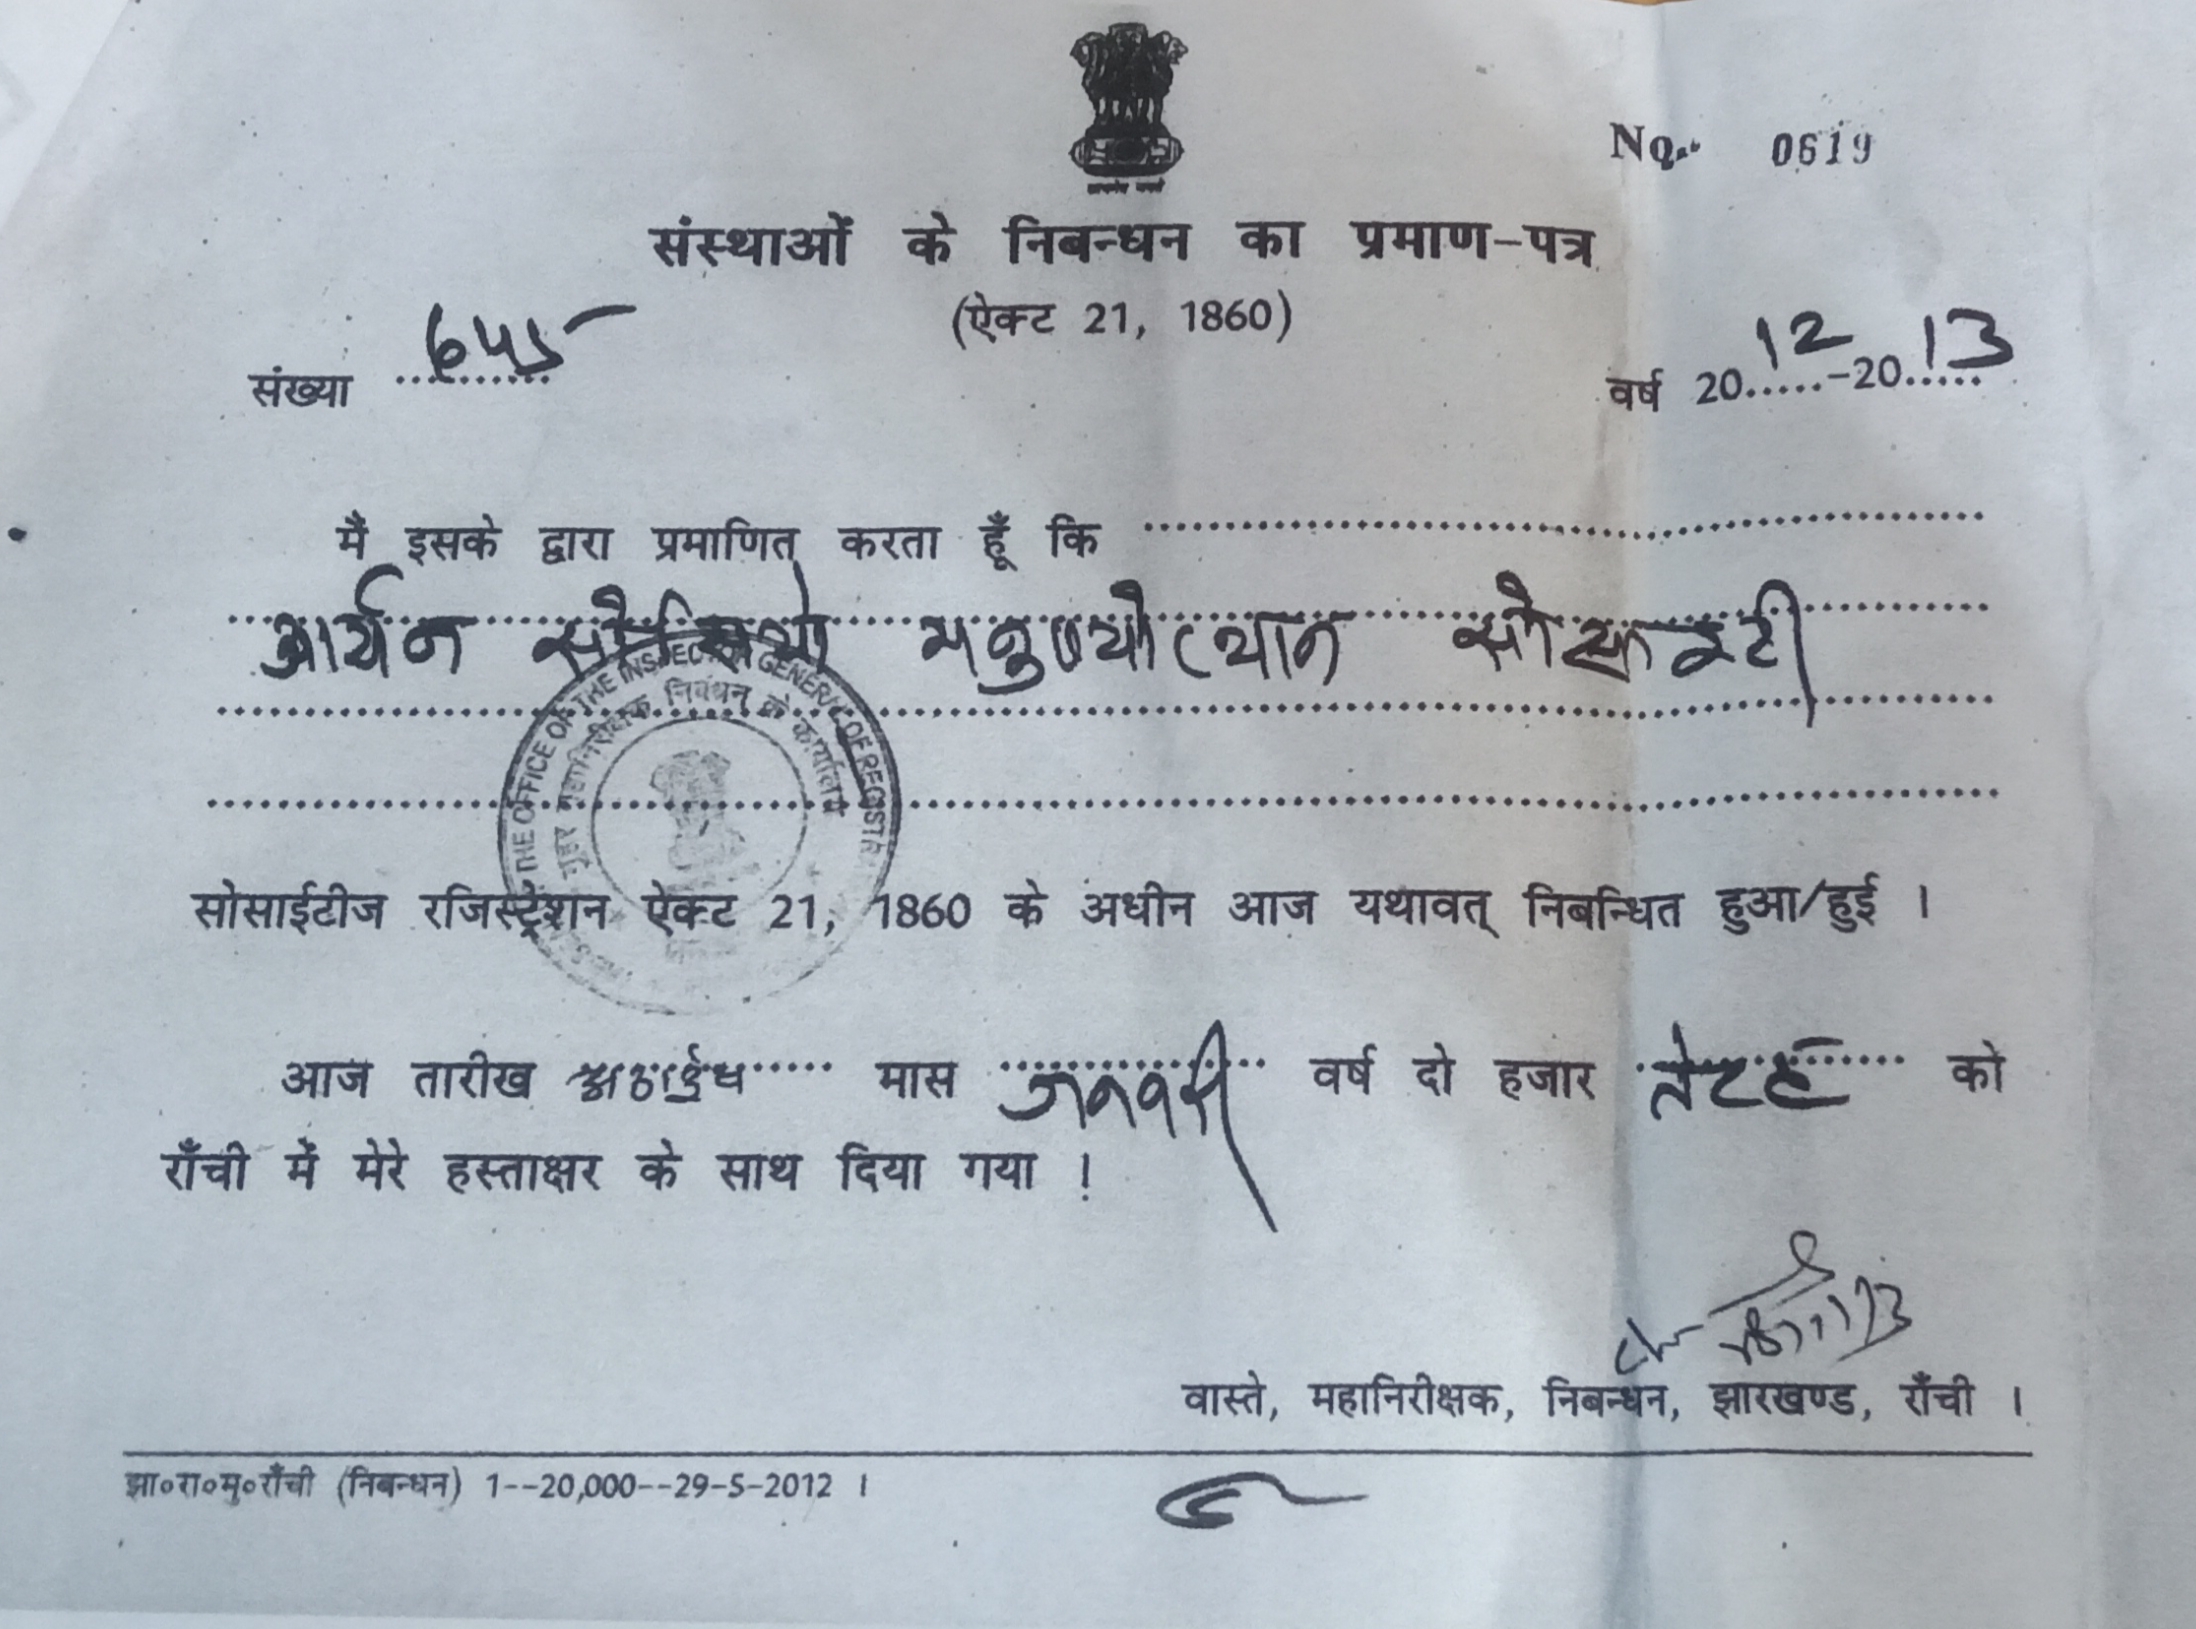 No. 0619
संस्थाओं के निबन्धन का प्रमाण-पत्र
(ऐक्ट 21, 1860)
संख्या 645
वर्ष 2012-2013
मैं इसके द्वारा प्रमाणित करता हूँ कि
आर्यन मनुष्योत्थान सोसाइटी
THE OFFICE OF THE INSPECTOR GENERAL OF REGISTR
महानिरीक्षक निबंधन का कार्यालय
सोसाईटीज रजिस्ट्रेशन ऐक्ट 21, 1860 के अधीन आज यथावत् निबन्धित हुआ/हुई ।
आज तारीख मास जनवरी वर्ष दो हजार तेरह को
राँची में मेरे हस्ताक्षर के साथ दिया गया !
वास्ते, महानिरीक्षक, निबन्धन, झारखण्ड, राँची ।
झा०रा०मु०राँची (निबन्धन) 1--20,000--29-5-2012 ।